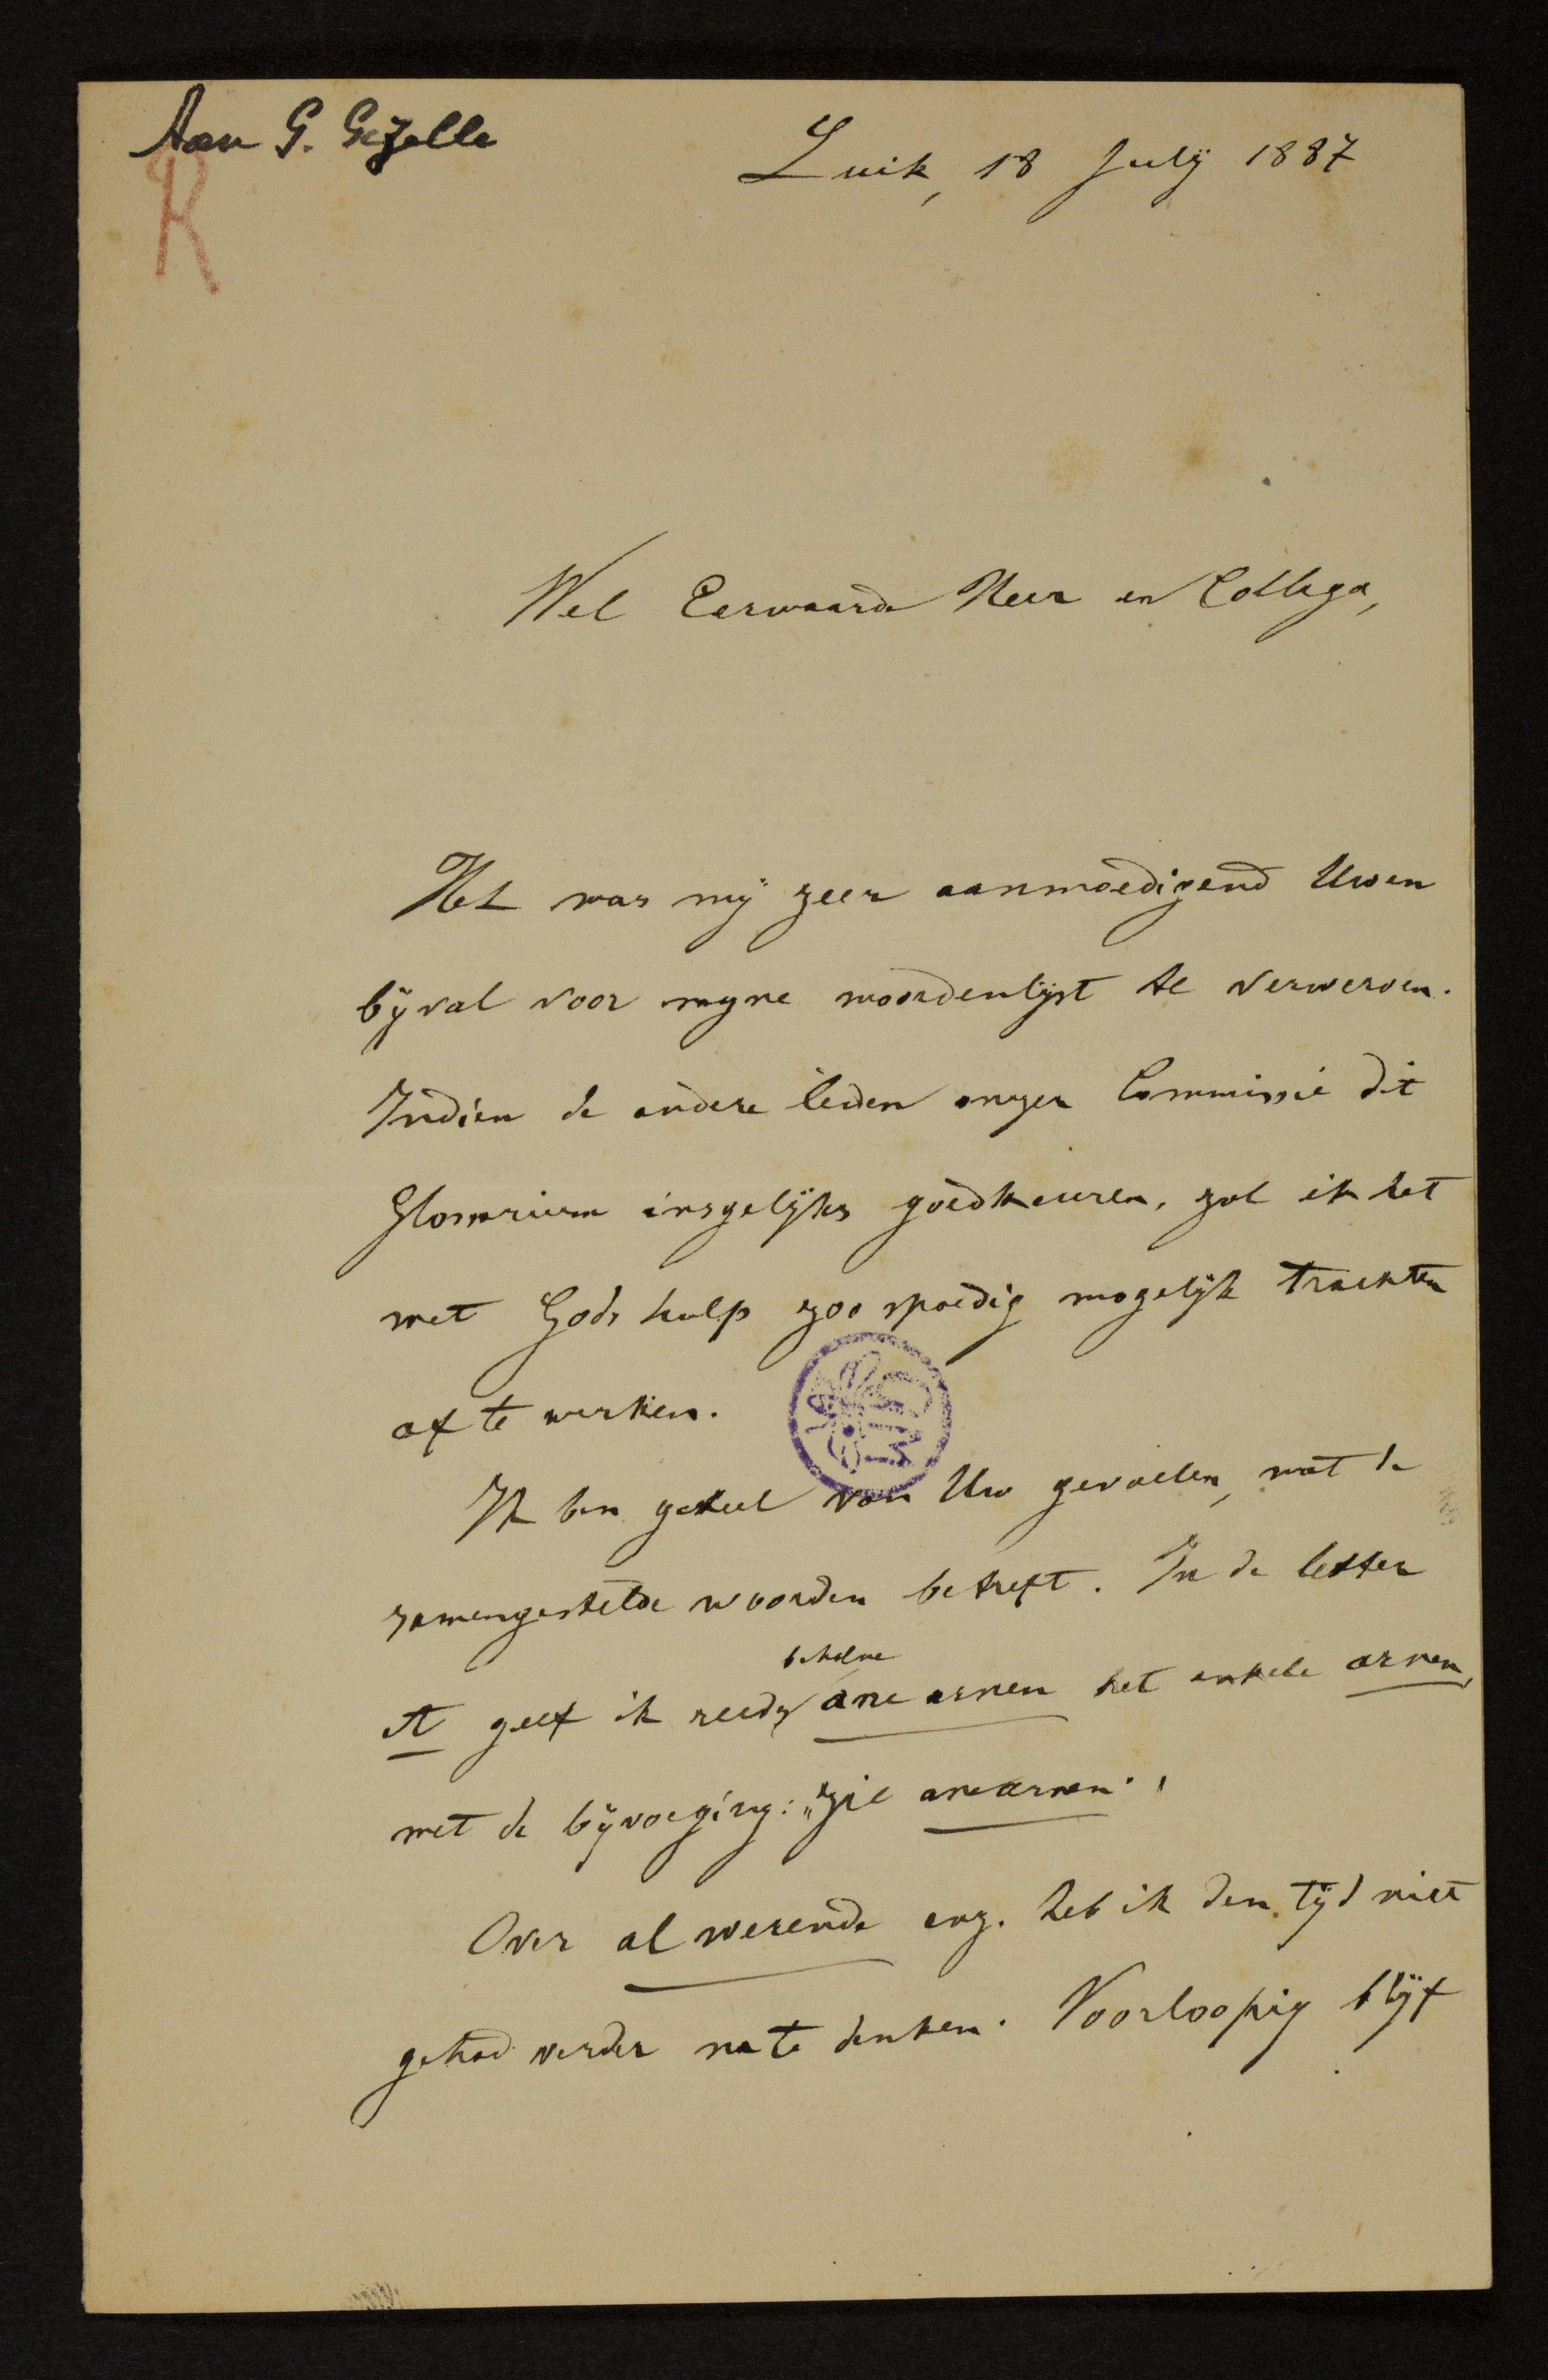 Aan G. Gezelle
R
Luik, 18 July 1887
Wel Eerwaarde Heer en Collega,
Het was mÿ zeer aanmoedigend Uwen
bÿval voor myne woordenlÿst te verwerven.
Indien de andere leden onzer Commissie dit
Glossarium insgelÿks goedkeuren, zal ik het
met Gods hulp zoo spoedig mogelÿk trachten
af te werken.
Ik ben geheel van Uw gevoelen, wat de
zamengestelde woorden betreft. In de letter
behalve
A geef ik reeds ane arnen het enkele arnen,
met de bÿvoeging: „zie anearnen.
Over al werende enz. heb ik den tÿd niet
gehad verder na te denken. Voorloopig blÿf